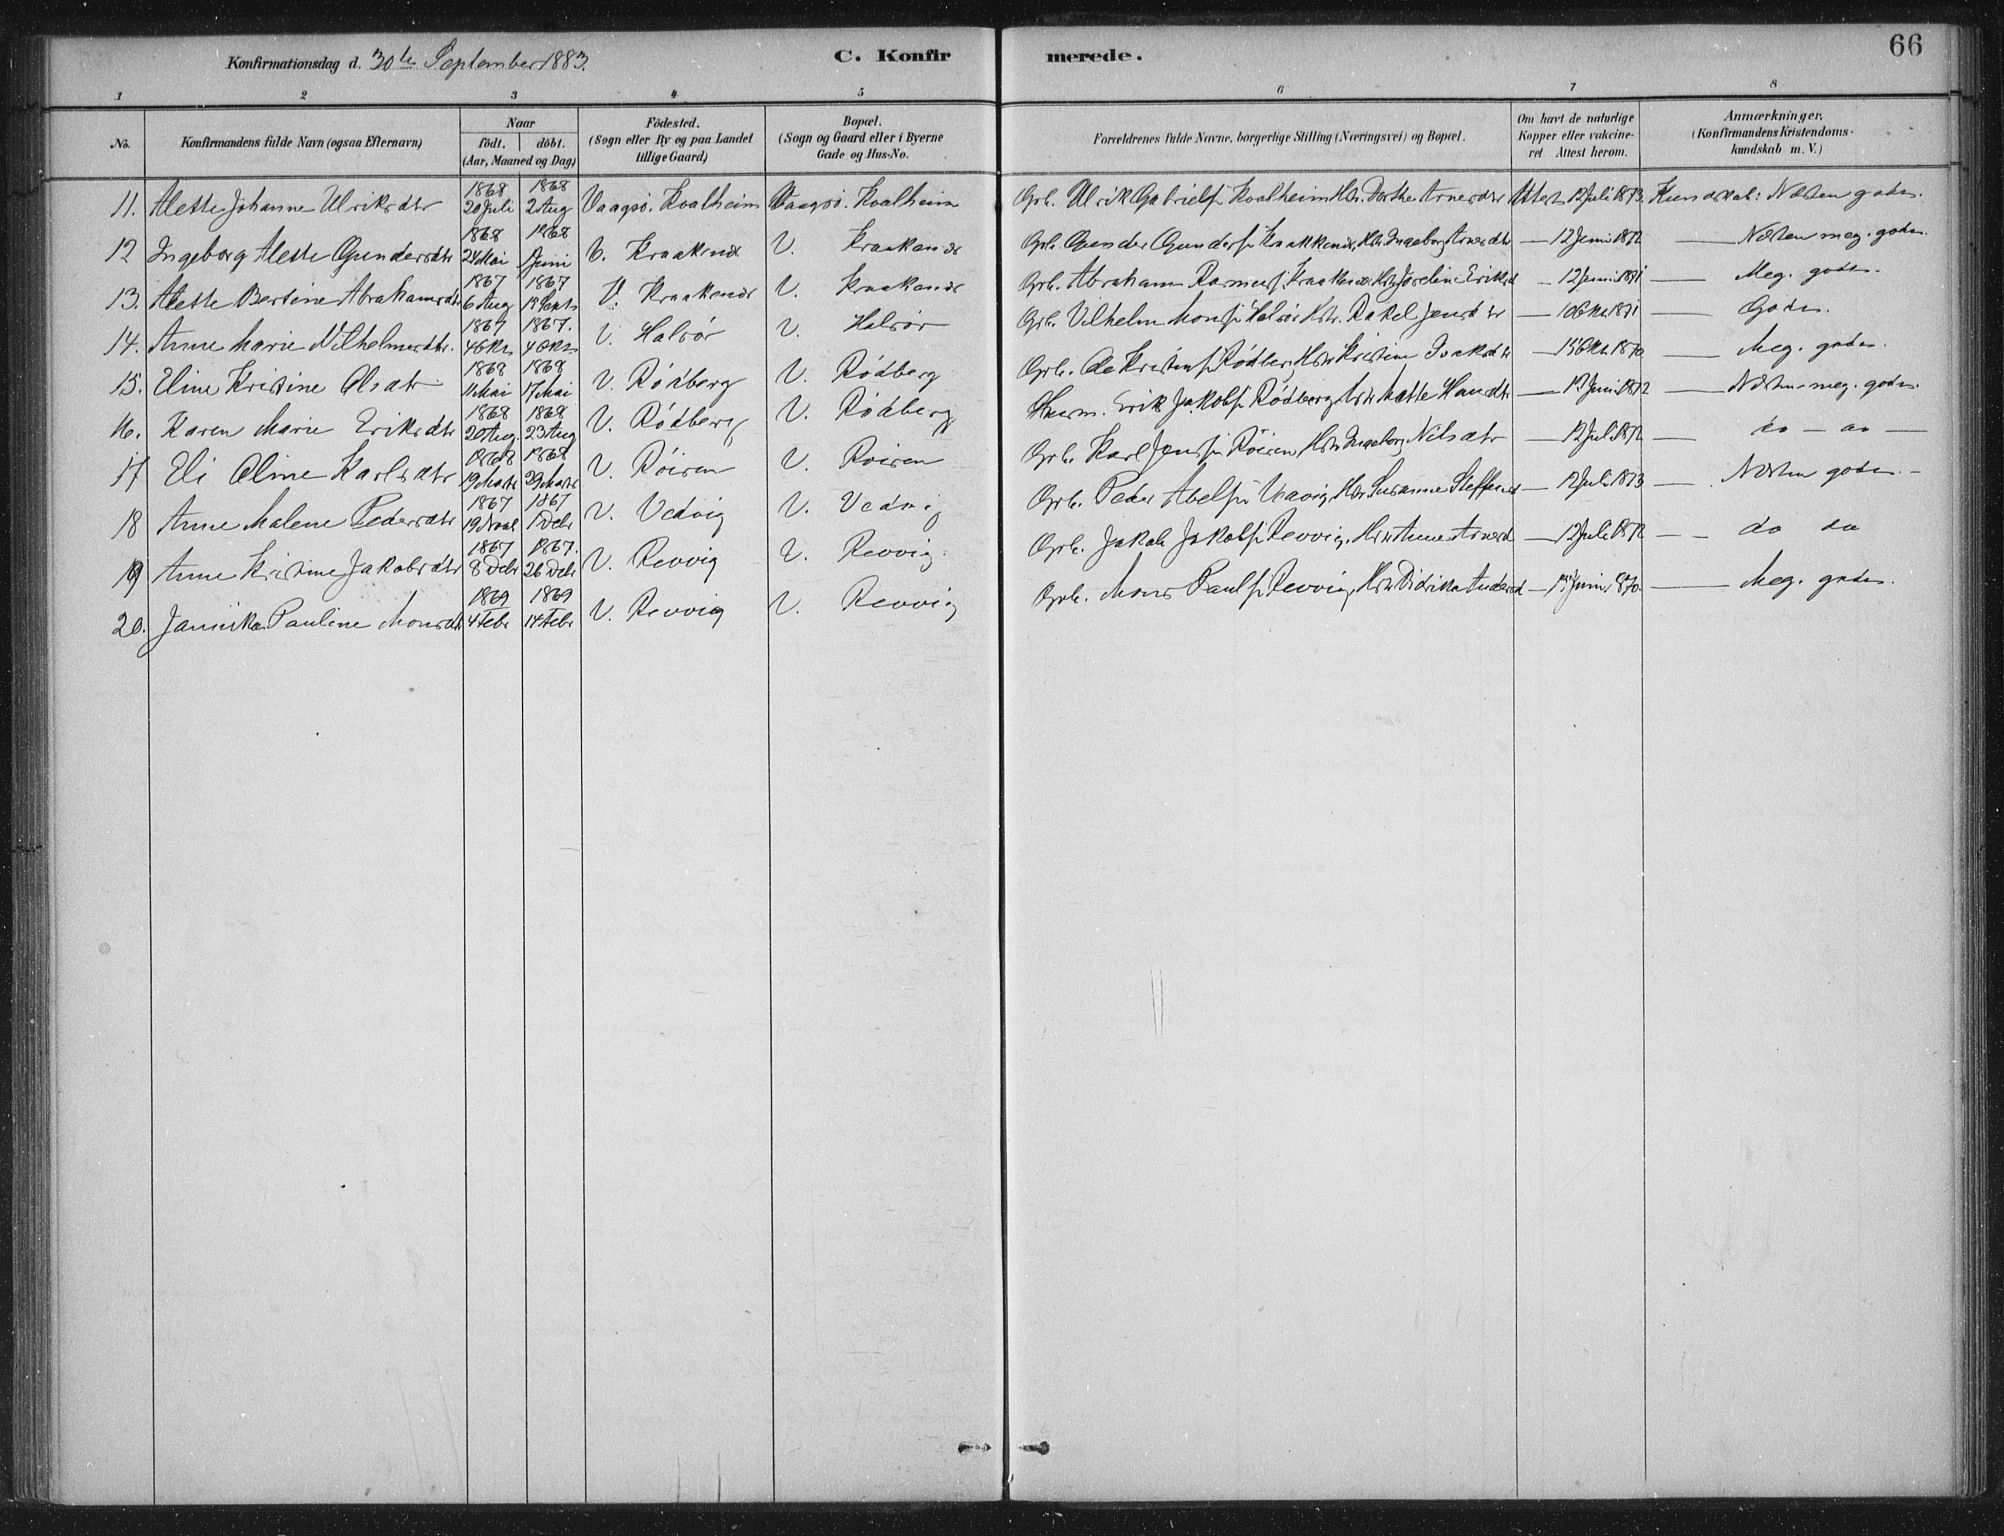 Konfirmationsdag d. 30te September 1883. C. Konfirmerede. 66
1 2 3 4 5 6 7 8
No. Konfirmandens fulde Navn (ogsaa Efternavn) Naar födt. döbt. (Aar, Maaned og Dag) Födested. (Sogn eller By og paa Landet tillige Gaard) Bopæl. (Sogn og Gaard eller i Byerne Gade og Hus-No. Forældrenes fulde Navne, borgerlige Stilling (Næringsvei) og Bopæl. Om havt de naturlige Kopper eller vakcineret Attest herom. Anmærkninger. (Konfirmandens Kristendomskundskab m. V.)
11. Alette Johanne Ulriksdtr 1868 20 Juli 1868 2 Aug Vaagsö. Kvalheim Vaagsö. Kvalheim Grb. Ulrik Gabrielss Kvalheim Hstr. Dorthe Arnesdtr Attest 12 Juli 1873. Kundskab: Næsten godes.
12 Ingeborg Alette Gundersdtr 1868 24 Mai 1868 Juni V. Kraakenes V. Kraakenes Grb. Gunder Gunders Kraakenes, Hstr Ingeborg Arnesdtr — 12 Juni 1872 — Næsten meg. godes.
13. Alette Bertine Abrahamsdtr 1867 6 Aug 1867 Sept V. Kraakenes V. Kraakenes Grb. Abraham Rasmuss Kraakenes Hstr Joreline Eriksd — 12 Juni 1871 — Meg. godes.
14. Anne Marie Vilhelmsdtr. 1867 4 Okt 1867. Okt V. Halsör V. Halsör Grb. Vilhelm Monss Halsör Hstr. Rakel Jensdtr — 10 Okt 1871 — Godes.
15. Eline Kristine Olsdtr 1868 11 Mai 1868 17 Mai V. Rödberg V. Rödberg Grb. Ole Kristens Rödberg Hstr Kristine Isaksdtr — 15 Okt. 1870. — Meg. godes.
16. Karen Marie Eriksdtr 1868 20 Aug. 1868 23 Aug V. Rödberg V. Rödberg Husm. Erik Jakobs Rödberg, Hstr Mætte Hansdtr — 12 Juni 1872 — Næsten meg. godes.
17 Eli Oline Karlsdtr 1868 19 Marts 1868 29 Marts V. Röiren V. Röiren Grb. Karl Jenss Röiren, Hstr Ingeborg Nilsdtr — 12 Juli 1872 — do — do —
18 Anne Malene Pedersdtr 1867 19 Novbr 1867 1 Debr V. Vedvig V. Vedvig Grb. Peder Abels Vedvig, Hstr Susanne Steffensd — 12 Juli 1873 — Næsten godes.
19 Anne Kristine Jakobsdtr 1867 8 Debr 1867. 26 Debr V. Revvig V. Revvig. Grb. Jakob Jakobs Revvig, Hstr Anne Arnesd — 12 Juli 1872 — do do
20. Pauline Monsdtr 1869 4 Febr 1869 14 Febr V. Revvig V. Revvig Grb. Mons Pauls Revvig, Hstr Didrikke Andersd — 15 Juni 1870. — Meg. godes.